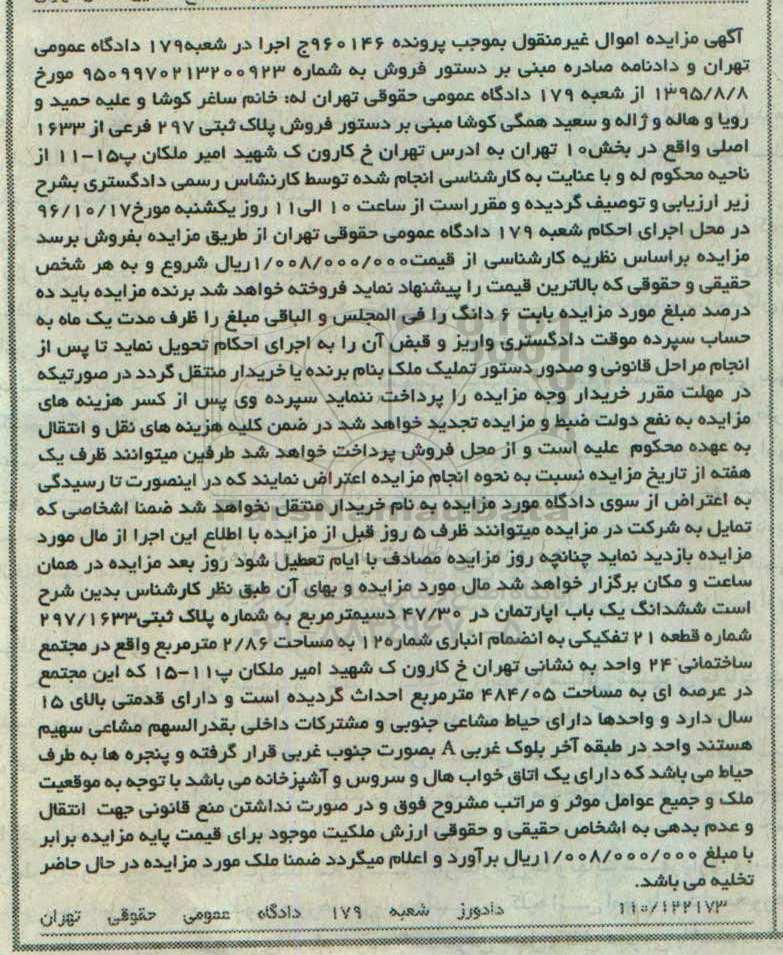 آگهی مزایده اموال غیرمنقول بموجب پرونده ۹۶۰۱۴۶ج اجرا در شعبه۱۷۹ دادگاه عمومی
تهران و دادنامه صادره مبنی بر دستور فروش به شماره ۹۵۰۹۹۷۰۲۱۳۲۰۰۹۲۳ مورخ
۱۳۹۵/۸/۸ از شعبه ۱۷۹ دادگاه عمومی حقوقی تهران له: خانم ساغر کوشا و علیه حمید و
رویا و هاله و ژاله و سعید همگی کوشا مبنی بر دستور فروش پلاک ثبتی ۲۹۷ فرعی از ۱۶۳۳
اصلی واقع در بخش۱۰ تهران به ادرس تهران خ کارون ک شهید امیر ملکان پ۱۵-۱۱ از
ناحیه محکوم له و با عنایت به کارشناسی انجام شده توسط کارنشاس رسمی دادگستری بشرح
زیر ارزیابی و توصیف گردیده و مقرراست از ساعت ۱۰ الی۱۱ روز یکشنبه مورخ۹۶/۱۰/۱۷
در محل اجرای احکام شعبه ۱۷۹ دادگاه عمومی حقوقی تهران از طریق مزایده بفروش برسد
مزایده براساس نظریه کارشناسی از قیمت۱/۰۰۸/۰۰۰/۰۰۰ریال شروع و به هر شخص
حقیقی و حقوقی که بالاترین قیمت را پیشنهاد نماید فروخته خواهد شد برنده مزایده باید ده
درصد مبلغ مورد مزایده بابت ۶ دانگ را فی المجلس و الباقی مبلغ را ظرف مدت یک ماه به
حساب سپرده موقت دادگستری واریز و قبض آن را به اجرای احکام تحویل نماید تا پس از
انجام مراحل قانونی و صدور دستور تملیک ملک بنام برنده یا خریدار منتقل گردد در صورتیکه
در مهلت مقرر خریدار وجه مزایده را پرداخت ننماید سپرده وی پس از کسر هزینه های
مزایده به نفع دولت ضبط و مزایده تجدید خواهد شد در ضمن کلیه هزینه های نقل و انتقال
به عهده محکوم علیه است و از محل فروش پرداخت خواهد شد طرفین میتوانند ظرف یک
هفته از تاریخ مزایده نسبت به نحوه انجام مزایده اعتراض نمایند که در اینصورت تا رسیدگی
به اعتراض از سوی دادگاه مورد مزایده به نام خریدار منتقل نخواهد شد ضمنا اشخاصی که
تمایل به شرکت در مزایده میتوانند ظرف ۵ روز قبل از مزایده با اطلاع این اجرا از مال مورد
مزایده بازدید نماید چنانچه روز مزایده مصادف با ایام تعطیل شود روز بعد مزایده در همان
ساعت و مکان برگزار خواهد شد مال مورد مزایده و بهای آن طبق نظر کارشناس بدین شرح
است ششدانگ یک باب اپارتمان در ۴۷/۳۰ دسیمترمربع به شماره پلاک ثبتی۲۹۷/۱۶۳۳
شماره قطعه ۲۱ تفکیکی به انضمام انباری شماره۱۲ به مساحت ۲/۸۶ مترمربع واقع در مجتمع
ساختمانی ۲۴ واحد به نشانی تهران خ کارون ک شهید امیر ملکان پ۱۱-۱۵ که این مجتمع
در عرصه ای به مساحت ۴۸۴/۰۵ مترمربع احداث گردیده است و دارای قدمتی بالای ۱۵
سال دارد و واحدها دارای حیاط مشاعی جنوبی و مشترکات داخلی بقدرالسهم مشاعی سهیم
هستند واحد در طبقه آخر بلوک غربی A بصورت جنوب غربی قرار گرفته و پنجره ها به طرف
حیاط می باشد که دارای یک اتاق خواب هال و سروس و آشپزخانه می باشد با توجه به موقعیت
ملک و جمیع عوامل موثر و مراتب مشروح فوق و در صورت نداشتن منع قانونی جهت انتقال
و عدم بدهی به اشخاص حقیقی و حقوقی ارزش ملکیت موجود برای قیمت پایه مزایده برابر
با مبلغ ۱/۰۰۸/۰۰۰/۰۰۰ریال برآورد و اعلام میگردد ضمنا ملک مورد مزایده در حال حاضر
تخلیه می باشد.
۱۱۰/۱۲۲۱۷۳ دادورز شعبه ۱۷۹ دادگاه عمومی حقوقی تهران